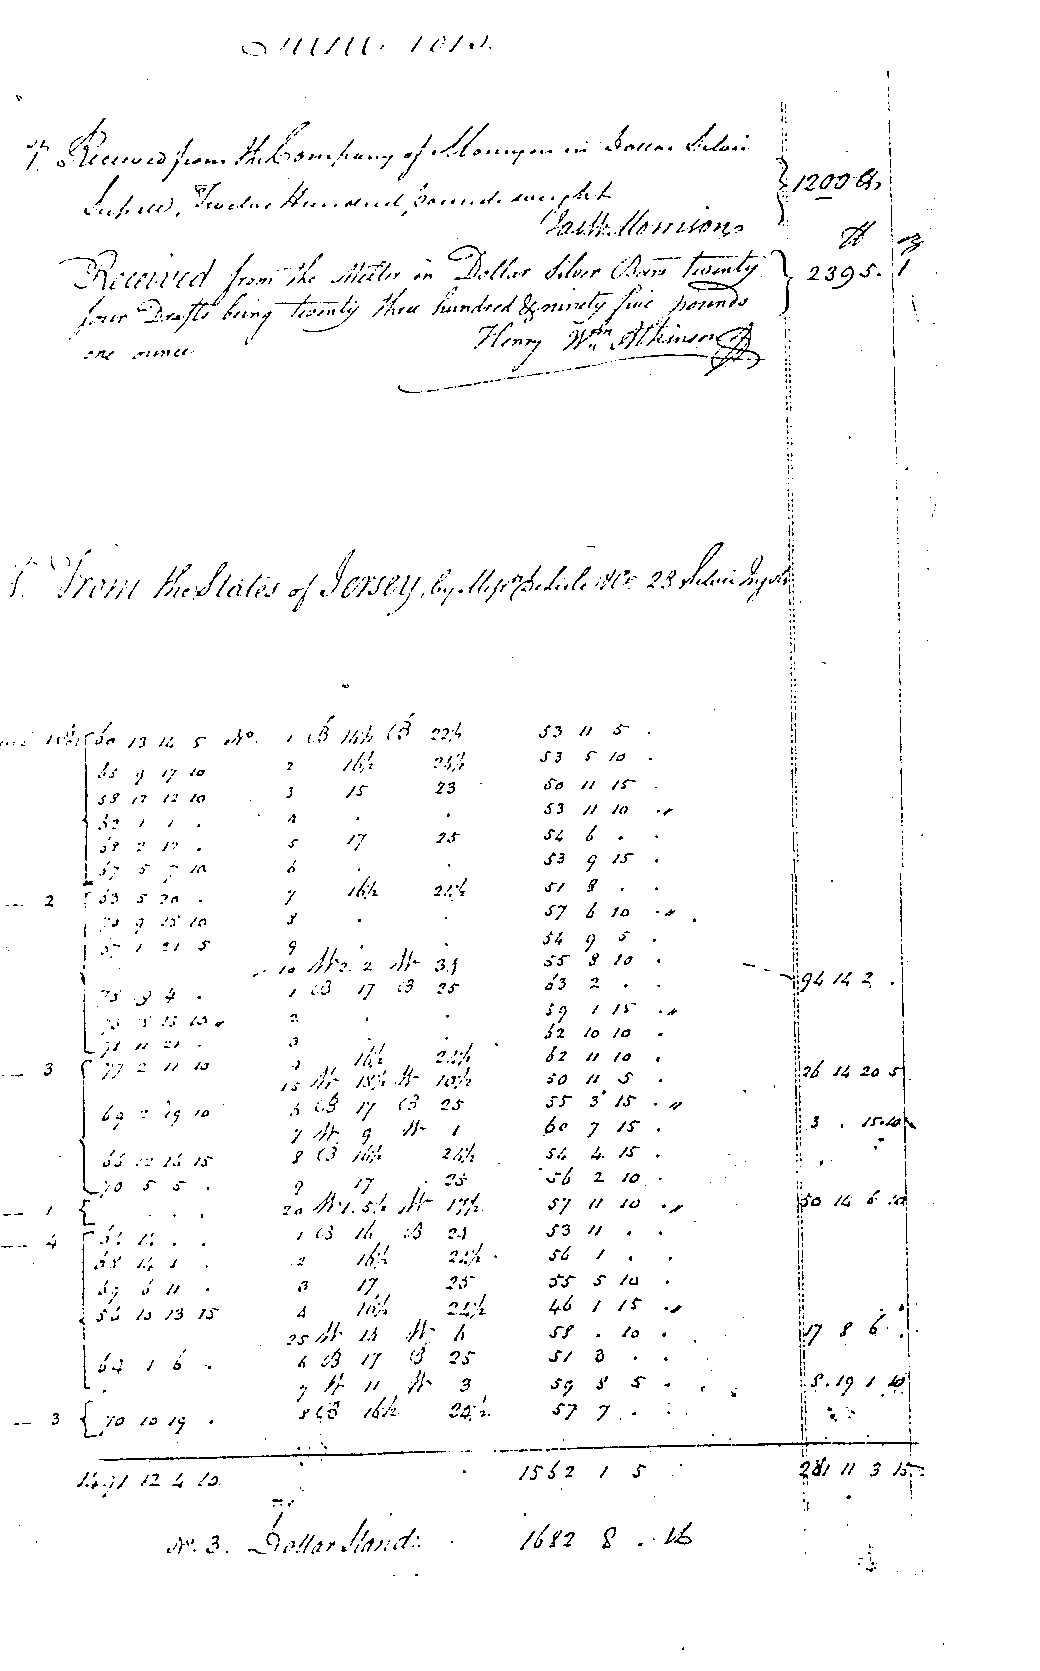 Received from the Company of Moneyers in Dollar Silver
Twelve Hundred pounds weight
1200 lb
Jas. W. Morrison
Received from the Melter in Dollar Silver Bars twenty
four Drafts being twenty three hundred & ninety five pounds
one ounce
2395. 1
Henry Wm Atkinson
From the States of Jersey, by Messrs De Lisle & Co. 23 Silver Ingots
13 14 5 No. 1 B 14½ B 22½ 53 11 5 .
65 9 17 10 2 16½ 24½ 53 5 10 .
58 17 12 10 3 15 23 50 11 15
62 1 1 . 4 . . 53 11 10 . "
68 2 12 . 5 17 25 54 6 . .
67 5 7 10 6 . . 53 9 15 .
2 63 5 20 . 7 16½ 24½ 51 8 . .
9 15 10 8 . . 57 6 10 . "
57 1 21 5 9 . . 54 9 5 .
10 W 2. 2 W 34 55 8 10 . 94 14 2 .
4 . 1 B 17 B 25 63 2 . .
2 . . 59 1 15 . "
71 11 21 . 3 62 10 10 .
3 77 2 11 10 4 16½ 24½ 62 11 10 .
15 W 18½ W 10½ 50 11 5 . 26 14 20 5
69 2 19 10 6 B 17 B 25 55 3 15 . "
7 W 9 W 1 60 7 15 . 3 . 15 10
65 12 16 15 8 B 16½ 24½ 54 4 15 .
70 5 5 . 9 17 25 56 2 10 .
1 . . . 20 W 1. 5½ W 17½ 57 11 10 . " 50 14 6 10
4 1 B 16 B 24 53 11 . .
68 14 1 . 2 16½ 24½ 56 1 . .
69 6 11 . 3 17 25 55 5 10 .
56 10 13 15 4 16½ 24½ 46 1 15 . "
25 W 14 W 6 58 . 10 . 17 8 6 .
64 1 6 . 6 B 17 B 25 51 3 . .
7 W 11 W 3 59 8 5 . 8 19 1 10
3 70 10 19 . 8 B 16½ 24½ 57 7 . .
1491 12 4 10 1562 1 5 281 11 3 15
No. 3. Dollar Stand: 1682 8 . lb